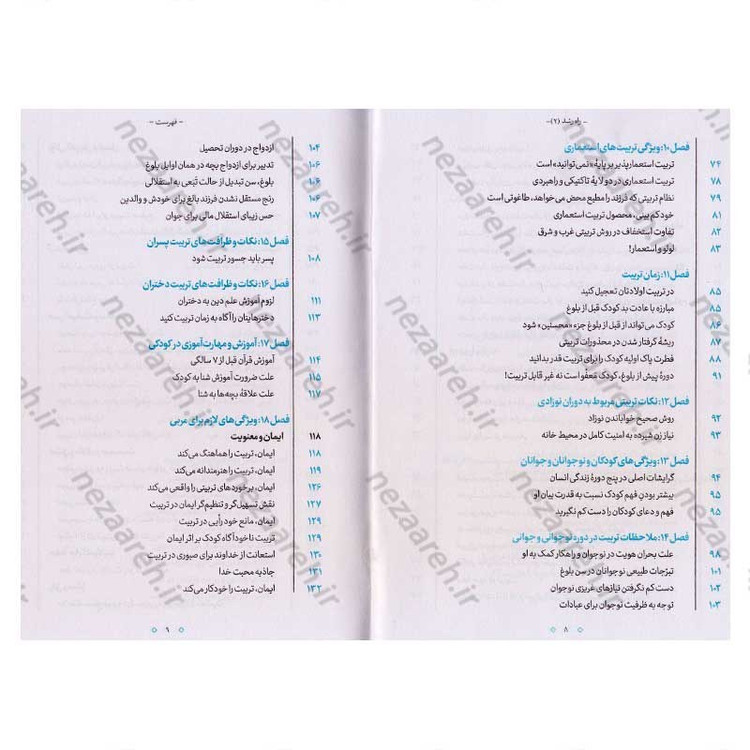 - راه رشد (۲) -
فصل ۱۰: ویژگی تربیت‌های استعماری
تربیت استعمارپذیر بر پایهٔ «نمی‌توانید» است ۷۴
تربیت استعماری در دو لایهٔ تاکتیکی و راهبردی ۷۸
نظام تربیتی که فرزند را مطیع محض می‌خواهد، طاغوتی است ۷۹
خودکم‌بینی، محصول تربیت استعماری ۸۱
تفاوت استخفاف در روش تربیتی غرب و شرق ۸۲
لولو و استعمار! ۸۳
فصل ۱۱: زمان تربیت
در تربیت اولادتان تعجیل کنید ۸۵
مبارزه با عادت بد کودک قبل از بلوغ ۸۵
کودک می‌تواند از قبل از بلوغ جزء «محسنین» شود ۸۶
ریشهٔ گرفتار شدن در محذورات تربیتی ۸۷
فطرت پاک اولیه کودک را برای تربیت قدر بدانید ۸۸
دورهٔ پیش از بلوغ، کودک مَعفُو است نه غیر قابل تربیت! ۹۱
فصل ۱۲: نکات تربیتی مربوط به دوران نوزادی
روش صحیح خواباندن نوزاد ۹۲
نیاز زن شیرده به امنیت کامل در محیط خانه ۹۳
فصل ۱۳: ویژگی های کودکان و نوجوانان و جوانان
گرایشات اصلی در پنج دورهٔ زندگی انسان ۹۴
بیشتر بودن فهم کودک نسبت به قدرت بیان او ۹۵
فهم و دعای کودکان را دست کم نگیرید ۹۵
فصل ۱۴: ملاحظات تربیت در دوره نوجوانی و جوانی
علت بحران هویت در نوجوان و راهکار کمک به او ۹۸
تبرّجات طبیعی نوجوانان در سن بلوغ ۱۰۱
دست کم نگرفتن نیازهای غریزی نوجوان ۱۰۲
توجه به ظرفیت نوجوان برای عبادات ۱۰۳
۸
- فهرست -
ازدواج در دوران تحصیل ۱۰۴
تدبیر برای ازدواج بچه در همان اوایل بلوغ ۱۰۶
بلوغ، سن تبدیل از حالت تَبَعی به استقلالی ۱۰۶
رنج مستقل نشدن فرزند بالغ برای خودش و والدین ۱۰۶
حس زیبای استقلال مالی برای جوان ۱۰۷
فصل ۱۵: نکات و ظرافت‌های تربیت پسران
پسر باید جسور تربیت شود ۱۰۸
فصل ۱۶: نکات و ظرافت های تربیت دختران
لزوم آموزش علم دین به دختران ۱۱۱
دخترهایتان را آگاه به زمان تربیت کنید ۱۱۳
فصل ۱۷: آموزش و مهارت‌آموزی در کودکی
آموزش قرآن قبل از ۷ سالگی ۱۱۴
علت ضرورت آموزش شنا به کودک ۱۱۵
علت علاقهٔ بچه‌ها به شنا ۱۱۷
فصل ۱۸: ویژگی‌های لازم برای مربی
ایمان و معنویت ۱۱۸
ایمان، تربیت را هماهنگ می‌کند ۱۱۸
ایمان، تربیت را هنرمندانه می‌کند ۱۱۹
ایمان، برخوردهای تربیتی را واقعی می‌کند ۱۲۶
نقش تسهیل‌گر و تنظیم‌گر ایمان در تربیت ۱۲۷
ایمان، مانع خود رأیی در تربیت ۱۲۹
تربیت ناخودآگاه کودک بر اثر ایمان ۱۲۹
استعانت از خداوند برای صبوری در تربیت ۱۳۰
جاذبه محبت خدا ۱۳۱
ایمان، تربیت را خودکار می‌کند ۱۳۲
۹
nezaareh.ir